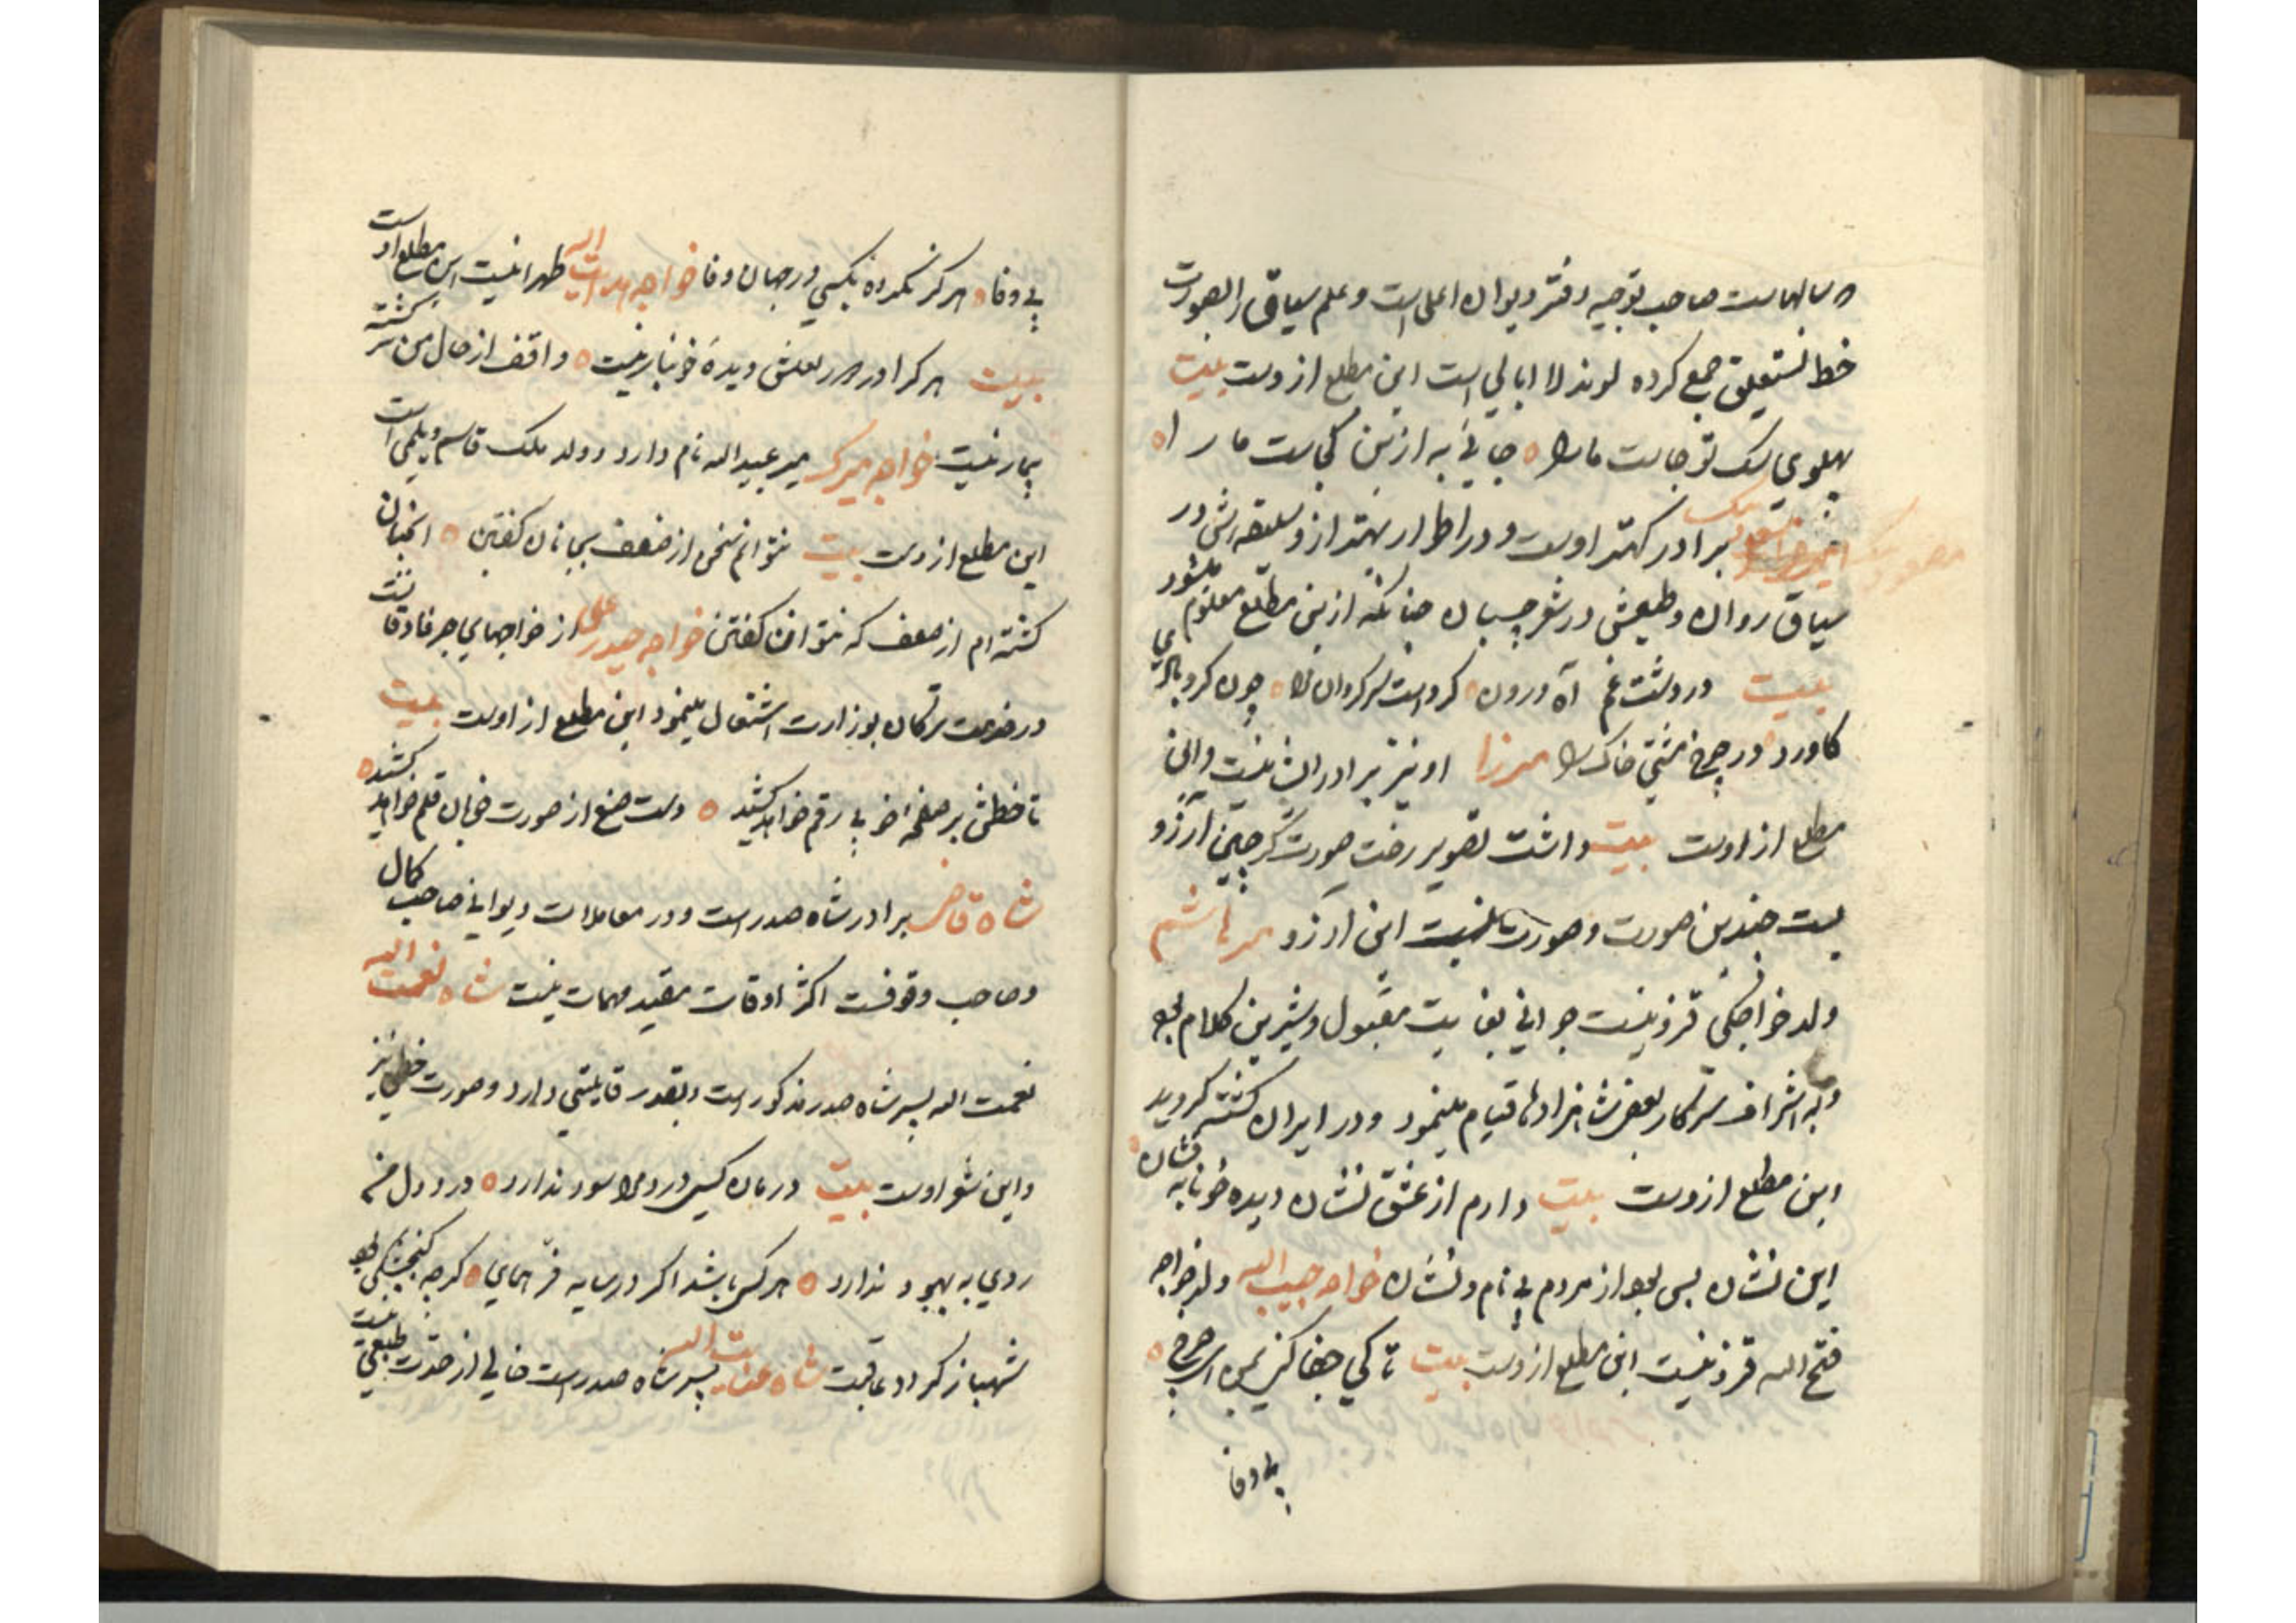 سالهاست صاحب توجیه دفتر دیوان اعلی است و علم سیاق را بصورت
خط نستعلیق جمع کرده لوند لاابالی است این مطلع ازوست بیت
پهلوی سک تو جاست مارا ه جائی به ازین کجاست مارا ه
برادر کهتر اوست و در اطوار بهتر ازو سلیقه‌اش در
سیاق روان و طبعش در شعر چسبان چنانکه ازین مطلع معلوم میشود
بیت در دشت غم آه درون کرد است سرکردان مرا ه چون کردبادی
کاورد در چرخ مشتی خاک را میرزا او نیز برادر ایشانست و این
مطلع از اوست بیت داشت تصویر رخت صورتگر چین آرزو
بست چندین صورت و صورت نبست این آرزو میر هاشم
ولد خواجکی قزوینیست جوانی بغایت مقبول و شیرین کلام بود
و به اشراف سرکار بعضی شاهزادها قیام مینمود و در ایران کشته کردید
این مطلع ازوست بیت دارم از عشق نشان دیده خونابه فشان ه
این نشان بس بود از مردم بی نام و نشان خواجه حبیب الله ولد خواجه
فتح الله قزوینیست این مطلع ازوست بیت تا کی جفا کنی بمن ای چرخ ه
بی وفا
بی وفا ه هرکز نکرده بکسی در جهان وفا خواجه هدایت الله طهرانیست این مطلع اوست
بیت هرکرا در هجر لعلش دیده خونبار نیست ه واقف از حال من سرکشته
بیمار نیست خواجه میرک میر عبید الله نام دارد و ولد ملک قاسم دیلمی است
این مطلع ازوست بیت نتوانم سخن از ضعف بجانان کفتن ه آنچنان
کشته‌ام از ضعف که نتوان کفتن خواجه حیدر علی از خواجهای جرفادقانست
در خدمت ترکان بوزارت اشتغال مینمود این مطلع از اوست بیت
تا خطش بر صفحه رقم خواهد کشید ه دست صنع از صورت خوبان قلم خواهد کشید ه
شاه قاضی برادر شاه صدر است و در معاملات دیوانی صاحب کمال
و صاحب وقوفست اکثر اوقات مقید مهمات نیست شاه نعمت الله
نعمت الله پسر شاه صدر مذکور است و بقدر قابلیتی دارد و صورت خطی نیز
و این شعر اوست بیت درمان کسی درد مرا سود ندارد ه درد دل من
روی به بهبود ندارد ه هرکس باشد اکر در سایه فر همای ه کرچه کنجشکی بود
شهباز کردد عاقبت شاه عنایت الله پسر شاه صدر است خالی از حدت طبعی نیست